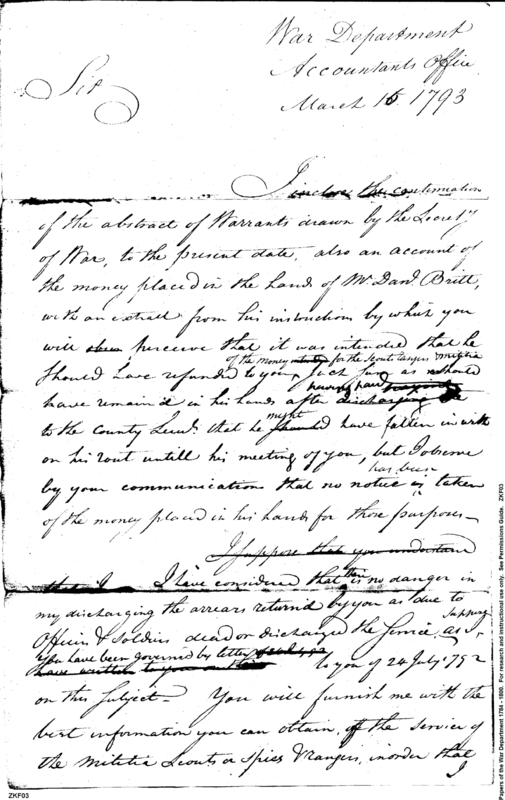 War Department
Accountants Office
March 16 1793
Sir
I inclose the continuation
of the abstract of Warrants drawn by the Secrety
of War, to the present date, also an account of
the money placed in the hands of Mr. Danl. Britt,
with an extract from his instructions by which you
will perceive that it was intended that he
of the money for the Scouts rangers militia
should have refunded to you, such sum as should
having paid
have remain'd in his hands after discharging
might
to the County Lieuts. that he should have fallen in with
on his rout untill his meeting of you, but I observe
has been
by your communication that no notice is taken
of the money placed in his hands for those purposes—
I suppose that you understand
there
that I I have considered that is no danger in
my discharging the arrears returned by you as due to
Officers & Soldiers dead or discharged the Service, as I
suppose
you have been governed by letter
have written to you on this to you of 24 July 1792
on this Subject— You will furnish me with the
best information you can obtain, of the service of
the Militia Scouts or Spies & rangers, in order that
I
ZKF03
Papers of the War Department 1784 - 1800. For research and instructional use only. See Permissions Guide. ZKF03